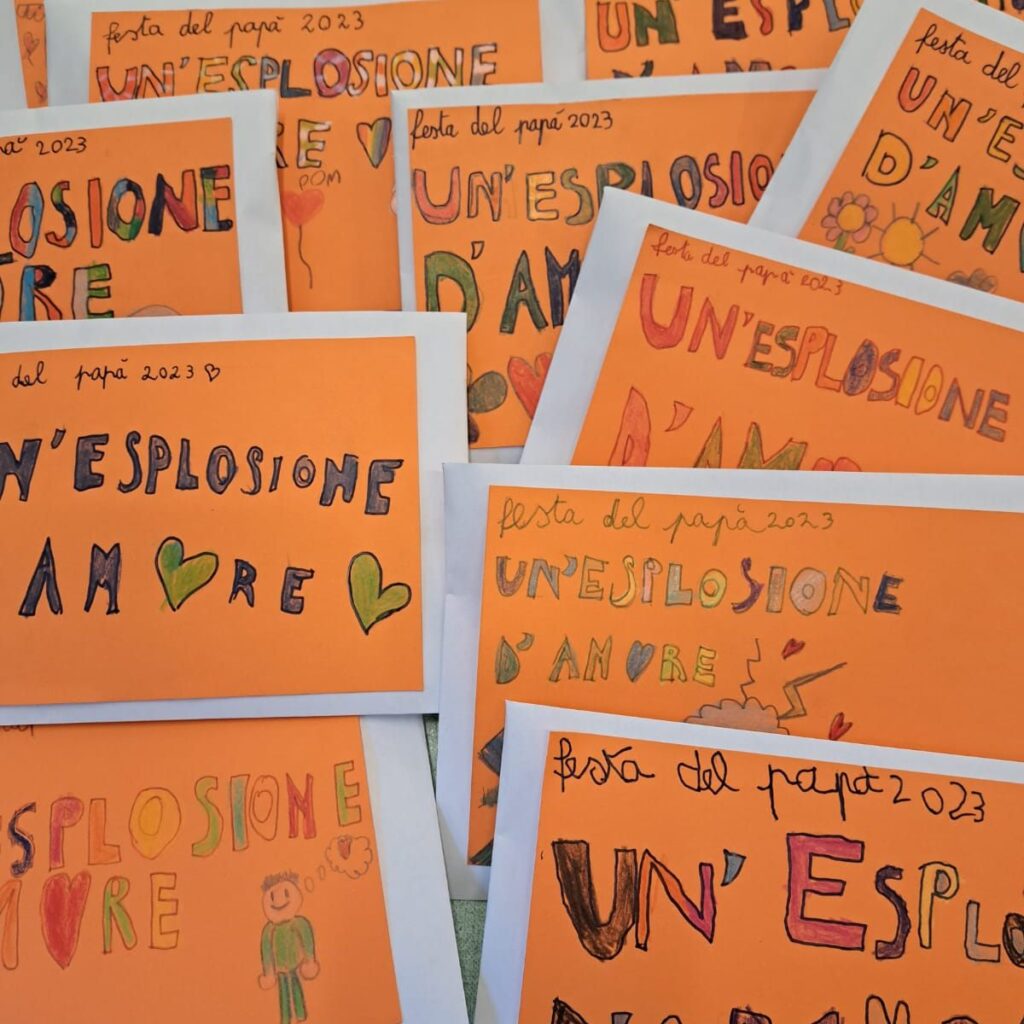 festa del papà 2023
UN'ESPLOSIONE
RE
POM
UN'ESP
festa del
UN'ES
D'AM
2023
LOSIONE
RE
festa del papà 2023
UN'ESPLOSIO
D'AM
festa del papà 2023
UN'ESPLOSIONE
D'AM
del papà 2023
N'ESPLOSIONE
AM RE
festa del papà 2023
UN'ESPLOSIONE
D'AM RE
SPLOSIONE
RE
festa del papà 2023
UN'ESPLO